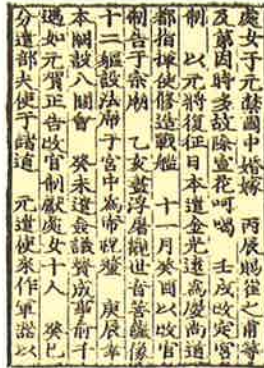 處女于元禁國中婚嫁　丙辰賜崔之甫等
及第因時多故除宣花呵喝　壬戌改定官
制　以元將復征日本遣金光遠為慶尚道
都指揮使修造戰艦　十一月癸酉以改官
制告于宗廟　乙亥畫浮屠觀世音菩薩像
十二軀設法席于宮中為帝祝釐　庚辰幸
本闕設八關會　癸未遣僉議贊成事俞千
遇如元賀正告改官制獻處女十人　癸巳
分遣部夫使于諸道　元遣使來作軍器以